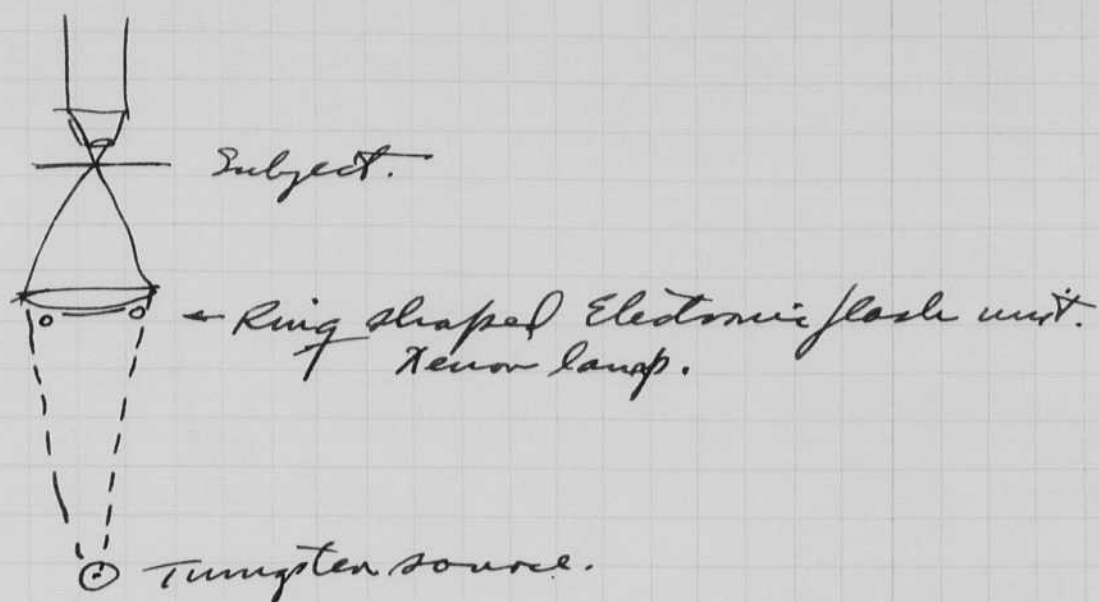 Subject.
← Ring shaped Electronic flash unit.
Xenon lamp.
Tungsten source.